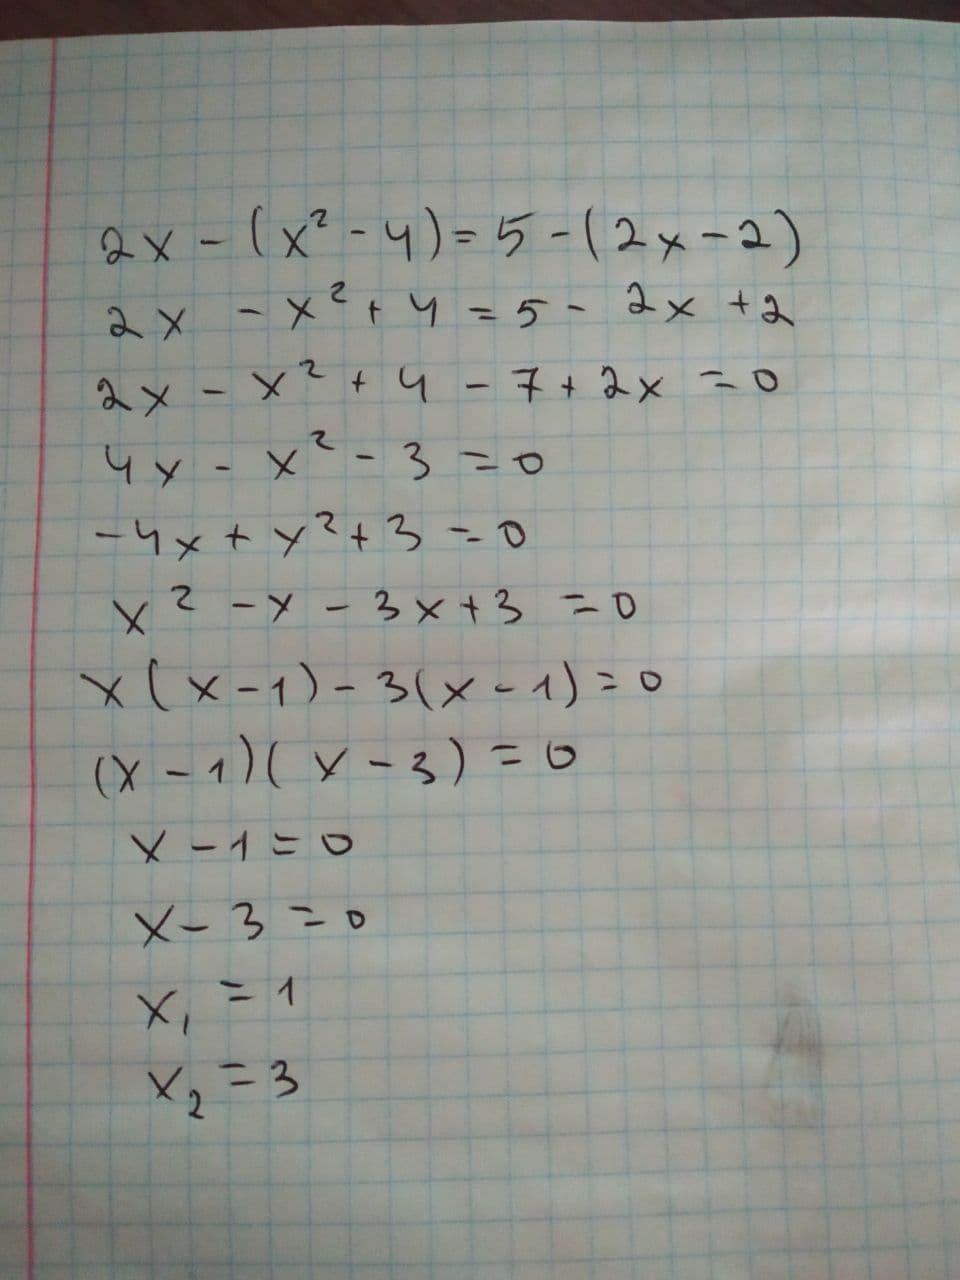 2x - (x² - 4) = 5 - (2x - 2)
2x - x² + 4 = 5 - 2x + 2
2x - x² + 4 - 7 + 2x = 0
4x - x² - 3 = 0
-4x + x² + 3 = 0
x² - x - 3x + 3 = 0
x(x - 1) - 3(x - 1) = 0
(x - 1)(x - 3) = 0
x - 1 = 0
x - 3 = 0
x₁ = 1
x₂ = 3